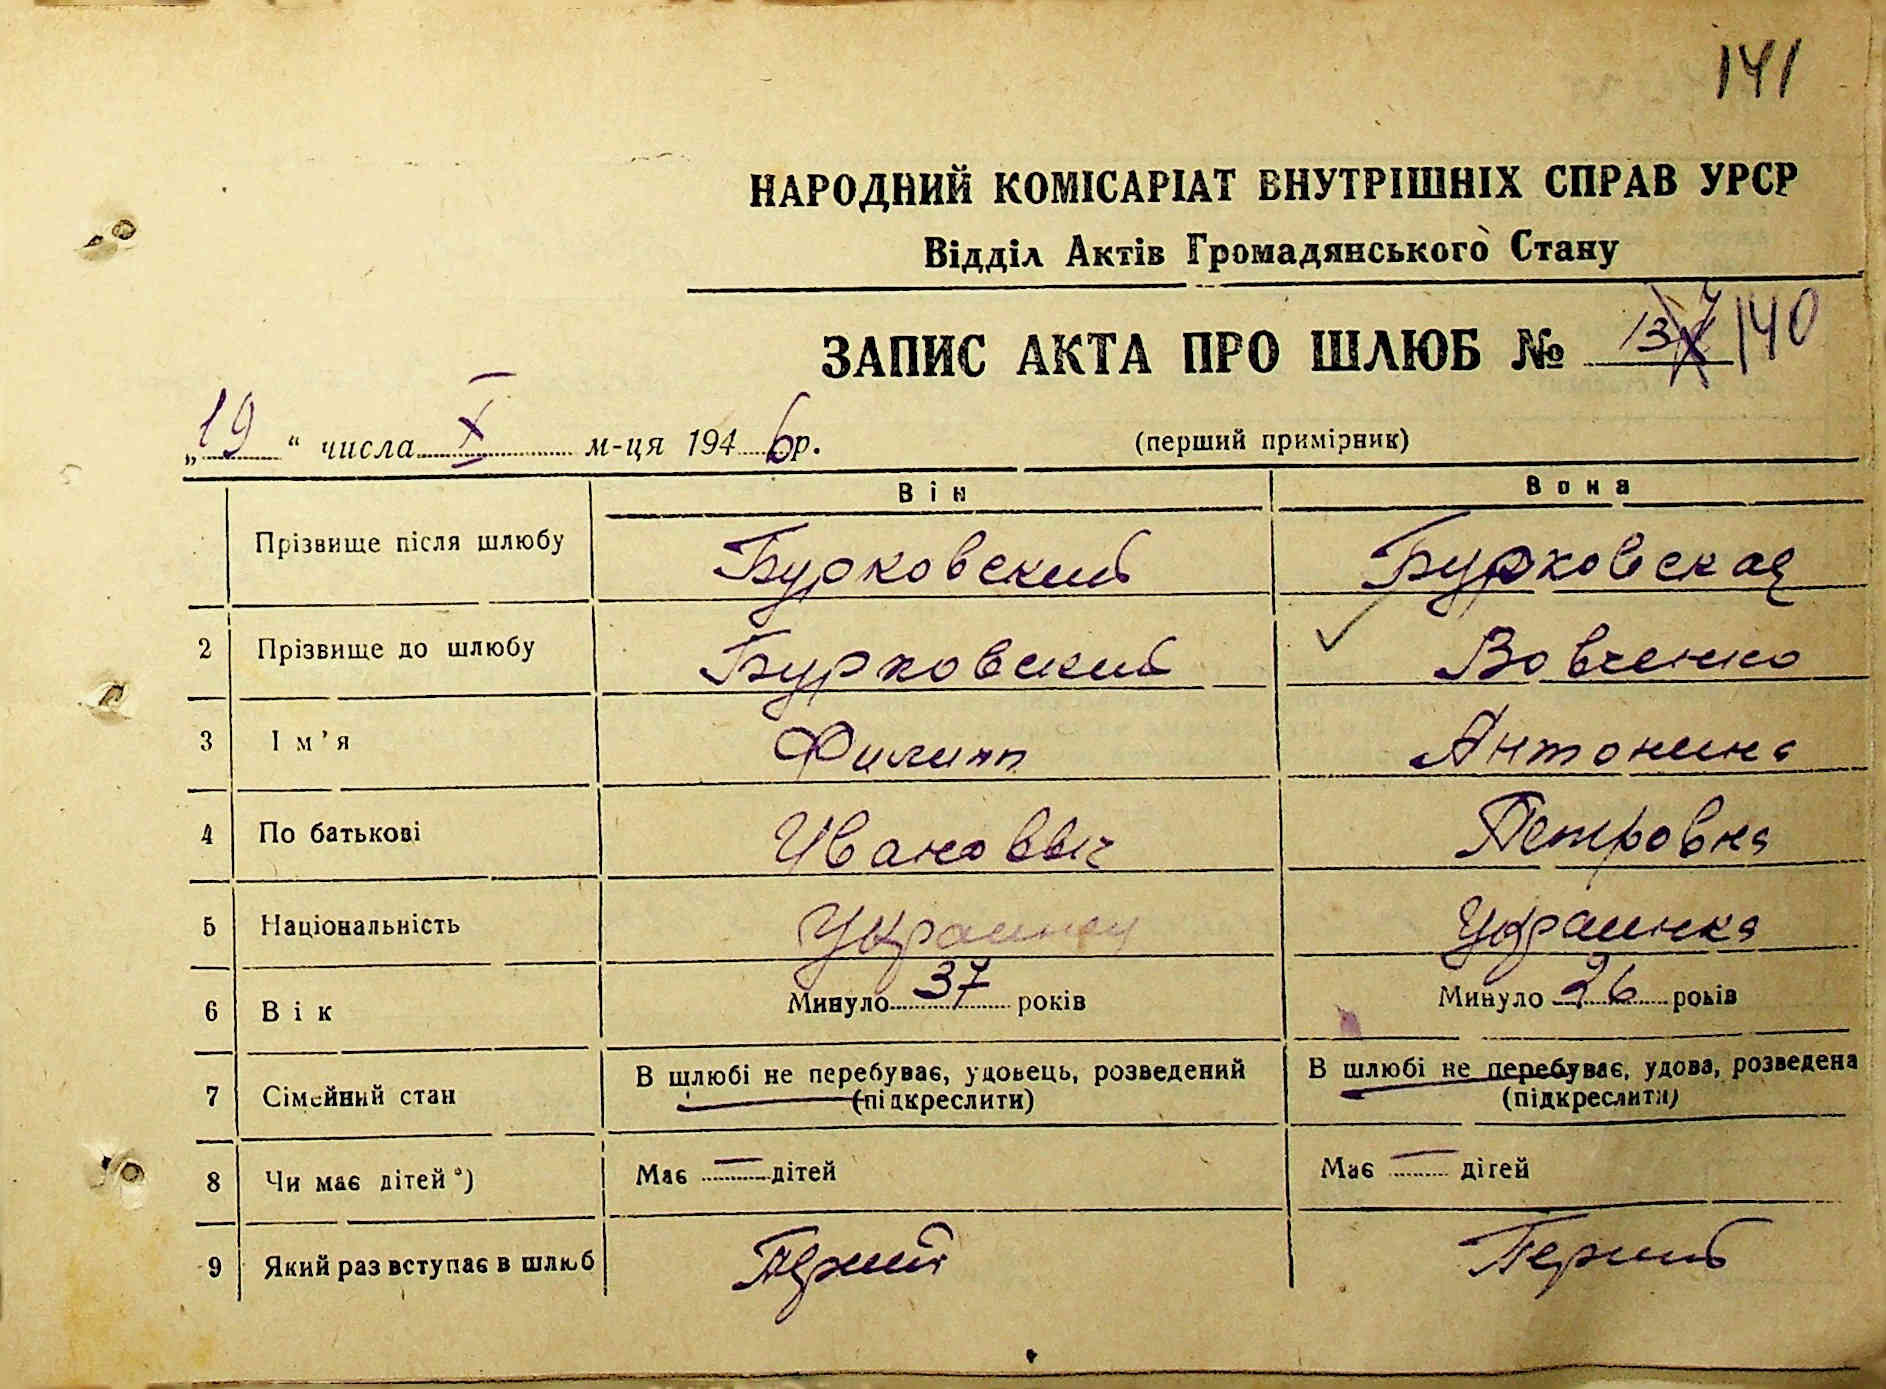 141
НАРОДНИЙ КОМІСАРІАТ ВНУТРІШНІХ СПРАВ УРСР
Відділ Актів Громадянського Стану
ЗАПИС АКТА ПРО ШЛЮБ № 137 140
„19“ числа X м-ця 1946 р. (перший примірник)
Він Вона
Прізвище після шлюбу Бурковский Бурковская
2 Прізвище до шлюбу Бурковский Вовченко
3 Ім’я Филипп Антонина
4 По батькові Иванович Петровна
5 Національність Украинец Украинка
6 Вік Минуло 37 років Минуло 26 років
7 Сімейний стан В шлюбі не перебуває, удовець, розведений (підкреслити) В шлюбі не перебуває, удова, розведена (підкреслити)
8 Чи має дітей *) Має — дітей Має — дітей
9 Який раз вступає в шлюб Перший Перший